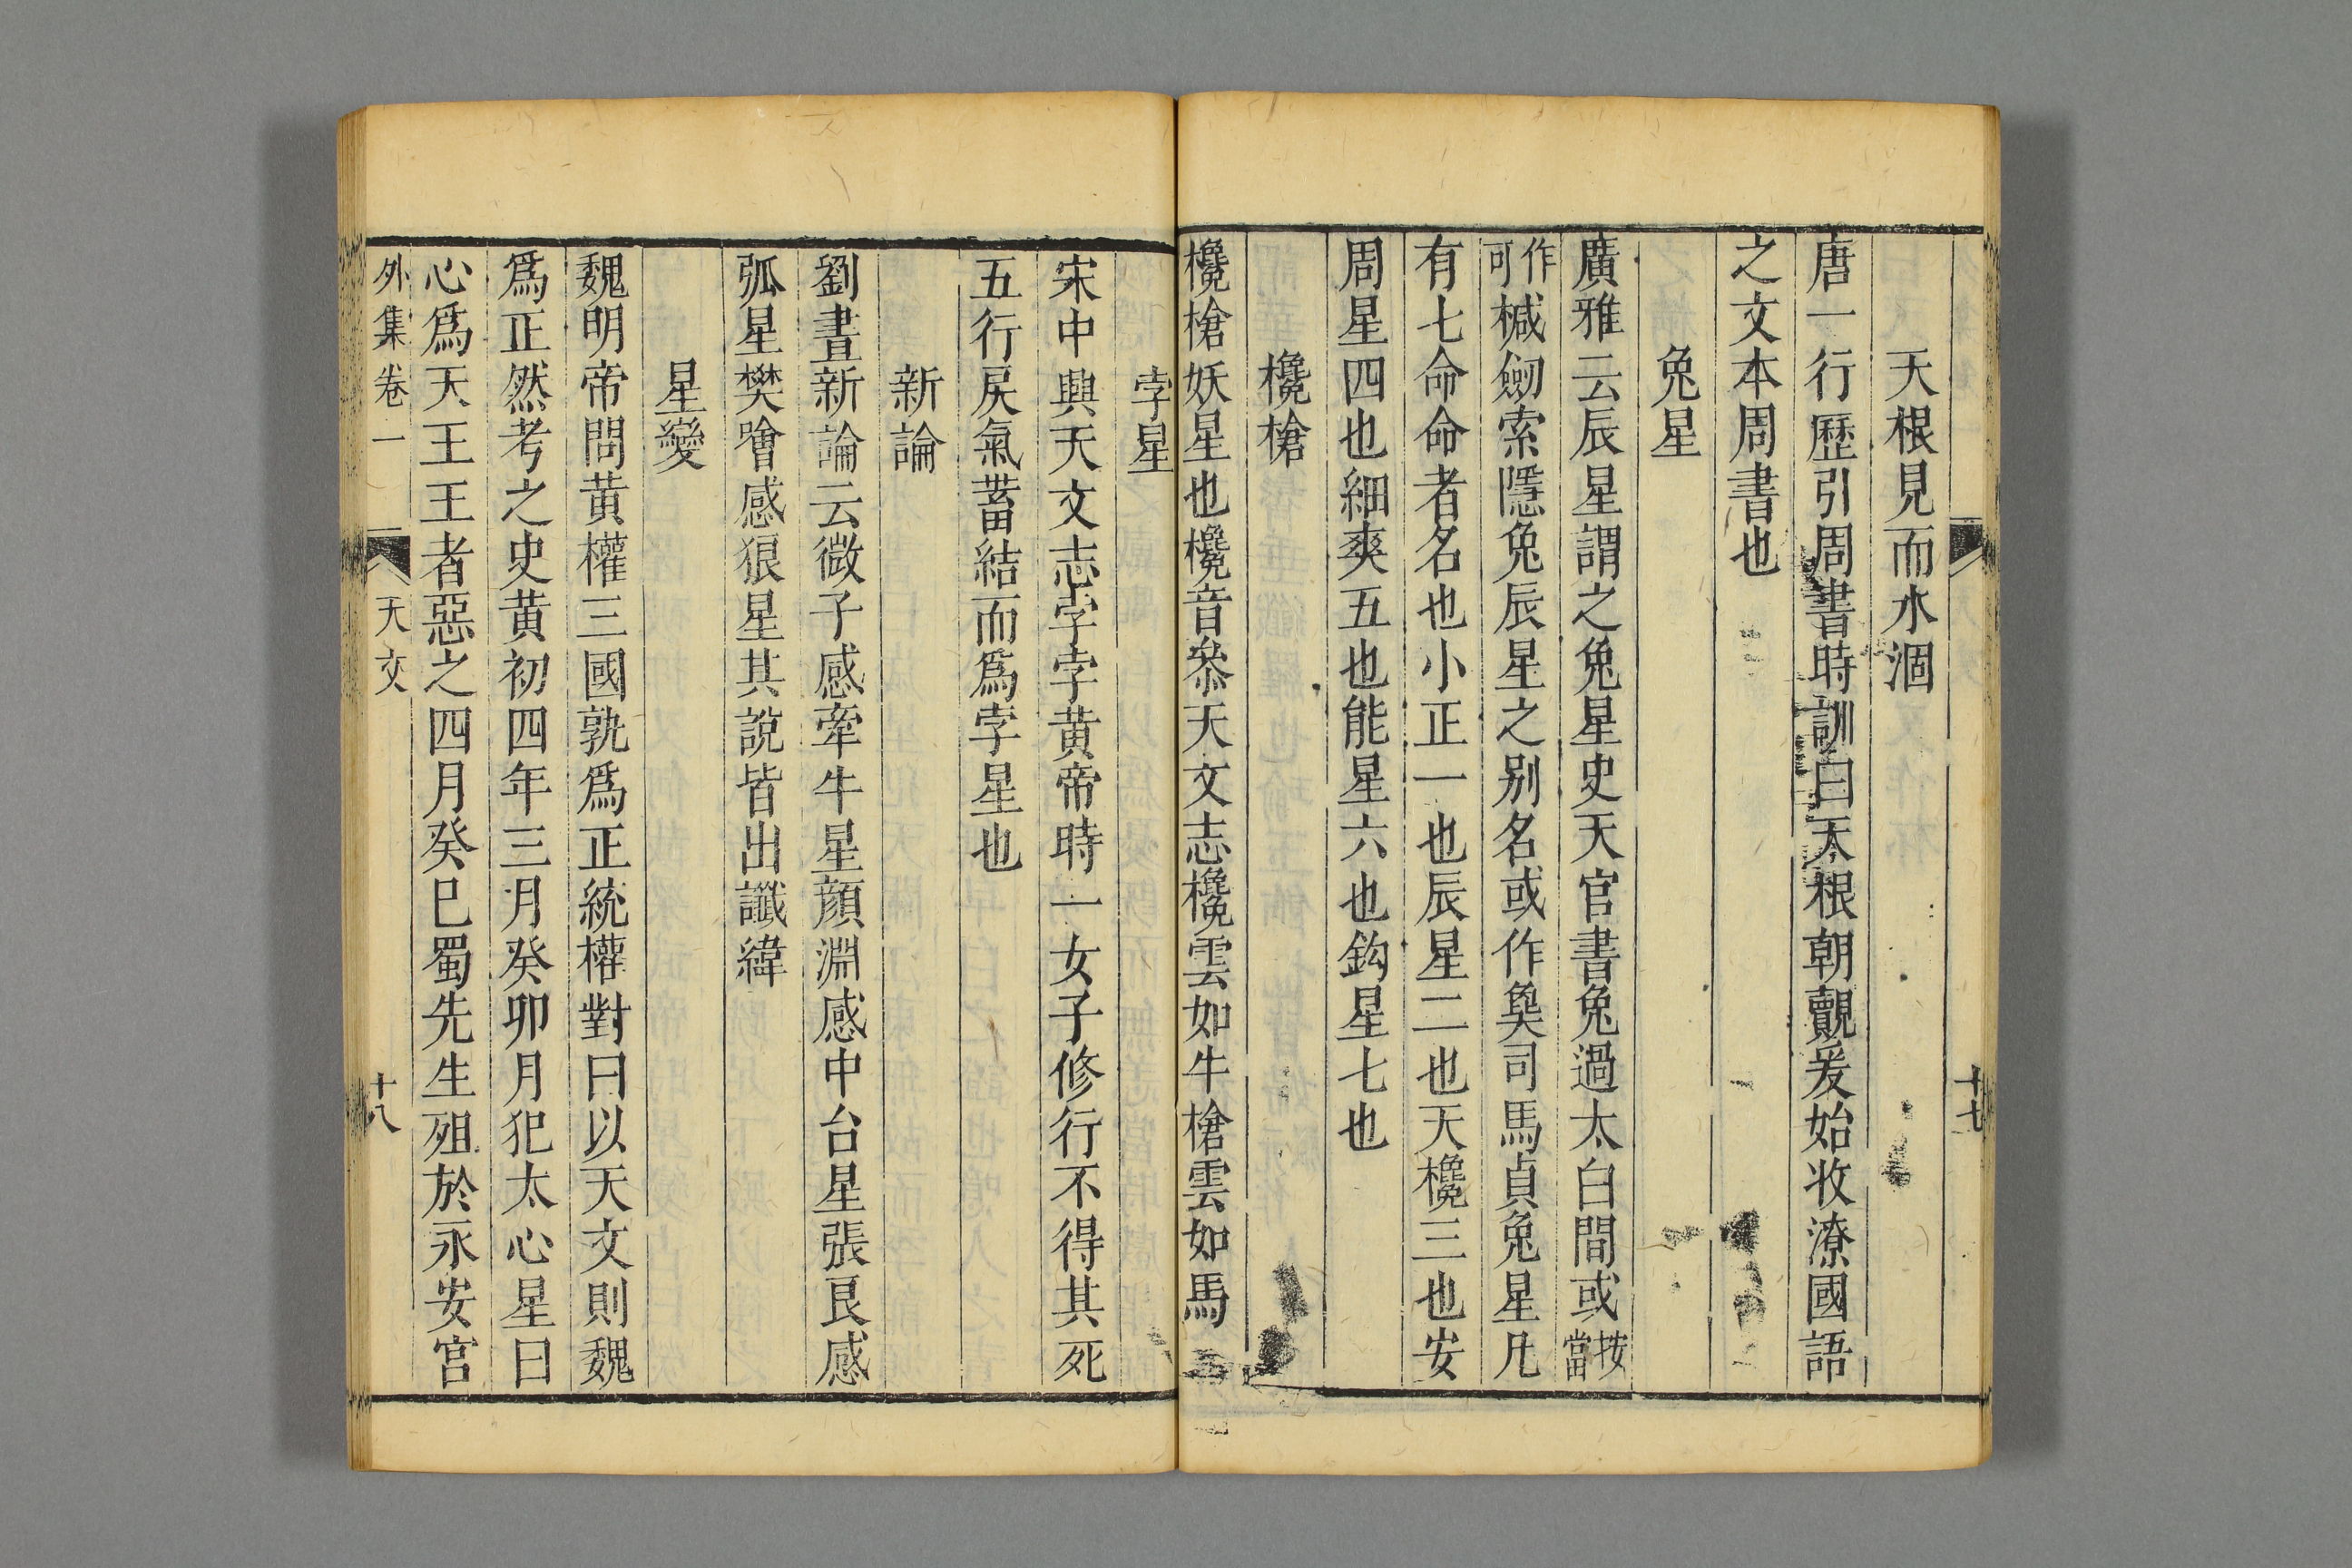 天根見而水涸
唐一行歷引周書時訓曰天根朝覿爰始收潦國語
之文本周書也
兔星
廣雅云辰星謂之兔星史天官書兔過太白間或按當
作可椷劒索隱兔辰星之别名或作㚖司馬貞兔星凡
有七命命者名也小正一也辰星二也天欃三也安
周星四也細爽五也能星六也鈎星七也
欃槍
欃槍妖星也欃音叅天文志欃雲如牛槍雲如馬
十七
孛星
宋中興天文志孛孛黄帝時一女子修行不得其死
五行戾氣蓄結而爲孛星也
新論
劉晝新論云微子感牽牛星顔淵感中台星張艮感
弧星樊噲感狠星其說皆出讖緯
星變
魏明帝問黄權三國孰爲正統權對曰以天文則魏
爲正然考之史黄初四年三月癸卯月犯太心星曰
心爲天王王者惡之四月癸巳蜀先生殂於永安宫
外集卷一 天文 十八